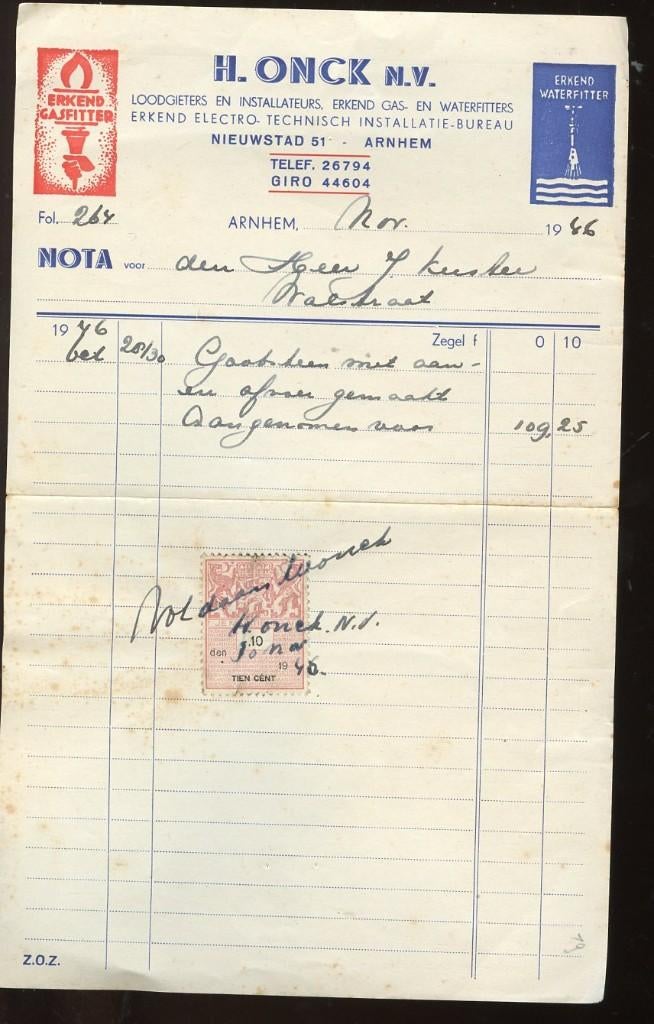 H. ONCK N.V.
ERKEND
GASFITTER
ERKEND
WATERFITTER
LOODGIETERS EN INSTALLATEURS, ERKEND GAS- EN WATERFITTERS
ERKEND ELECTRO-TECHNISCH INSTALLATIE-BUREAU
NIEUWSTAD 51 - ARNHEM
TELEF. 26794
GIRO 44604
Fol. 264 ARNHEM, Nov. 19 46
NOTA voor den Heer J
Walstraat
19 46 Zegel f 0 10
oct 28/30 Gootsteen met aan-
en afvoer gemaakt
Aangenomen voor 109,25
Voldaan
H. onck. N.V.
10
den 30 nov 19 46.
TIEN CENT
Z.O.Z.